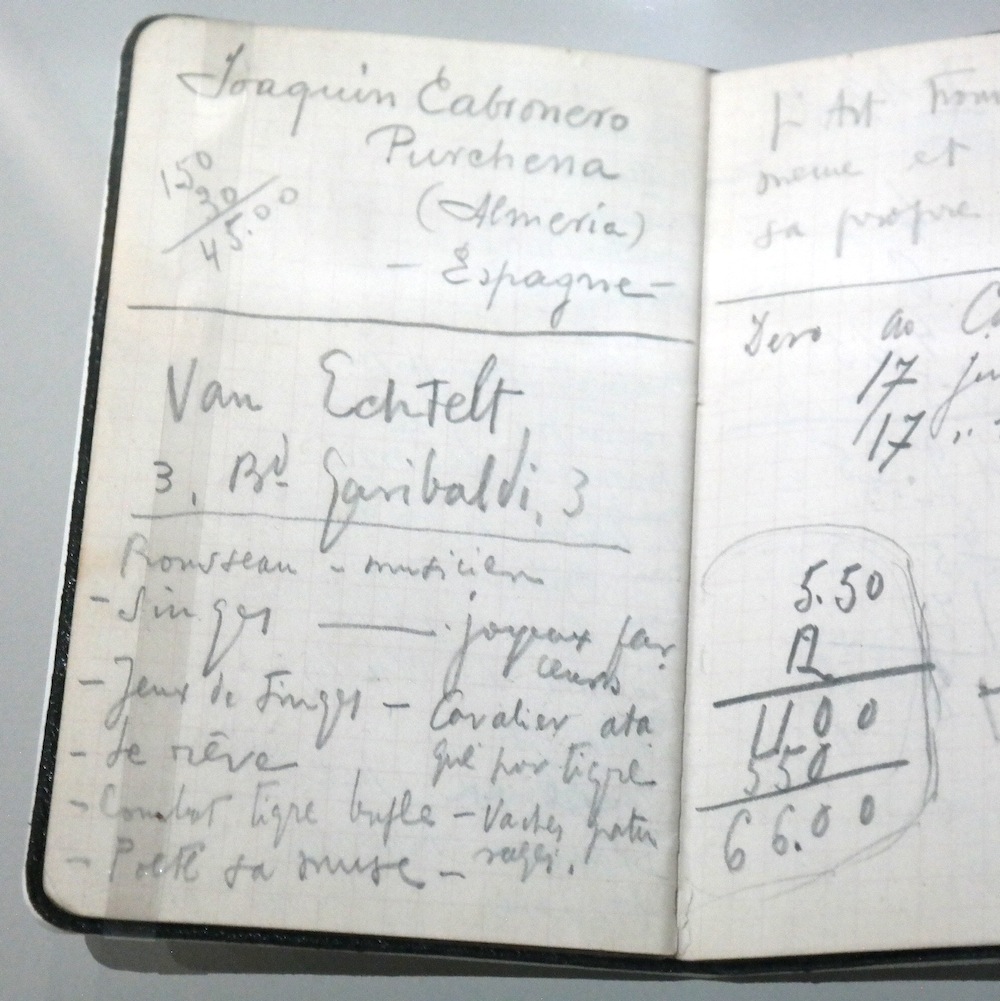 Joaquin Cabronero
Purchena
(Almeria)
- Espagne -
150
30
45.00
Van Echtelt,
3, Bd Garibaldi, 3
Rousseau - musicien
- Singes — joyeux far
ceurs
- Jeux de singes - Cavalier ata
qué par tigre
- Le rêve
- Combat tigre bufle - Vaches patu
rages.
- Poete sa muse -
L'Art
meme et
sa propre
Devo ao
17 Jun
17 " "
5.50
12
1100
550
66.00